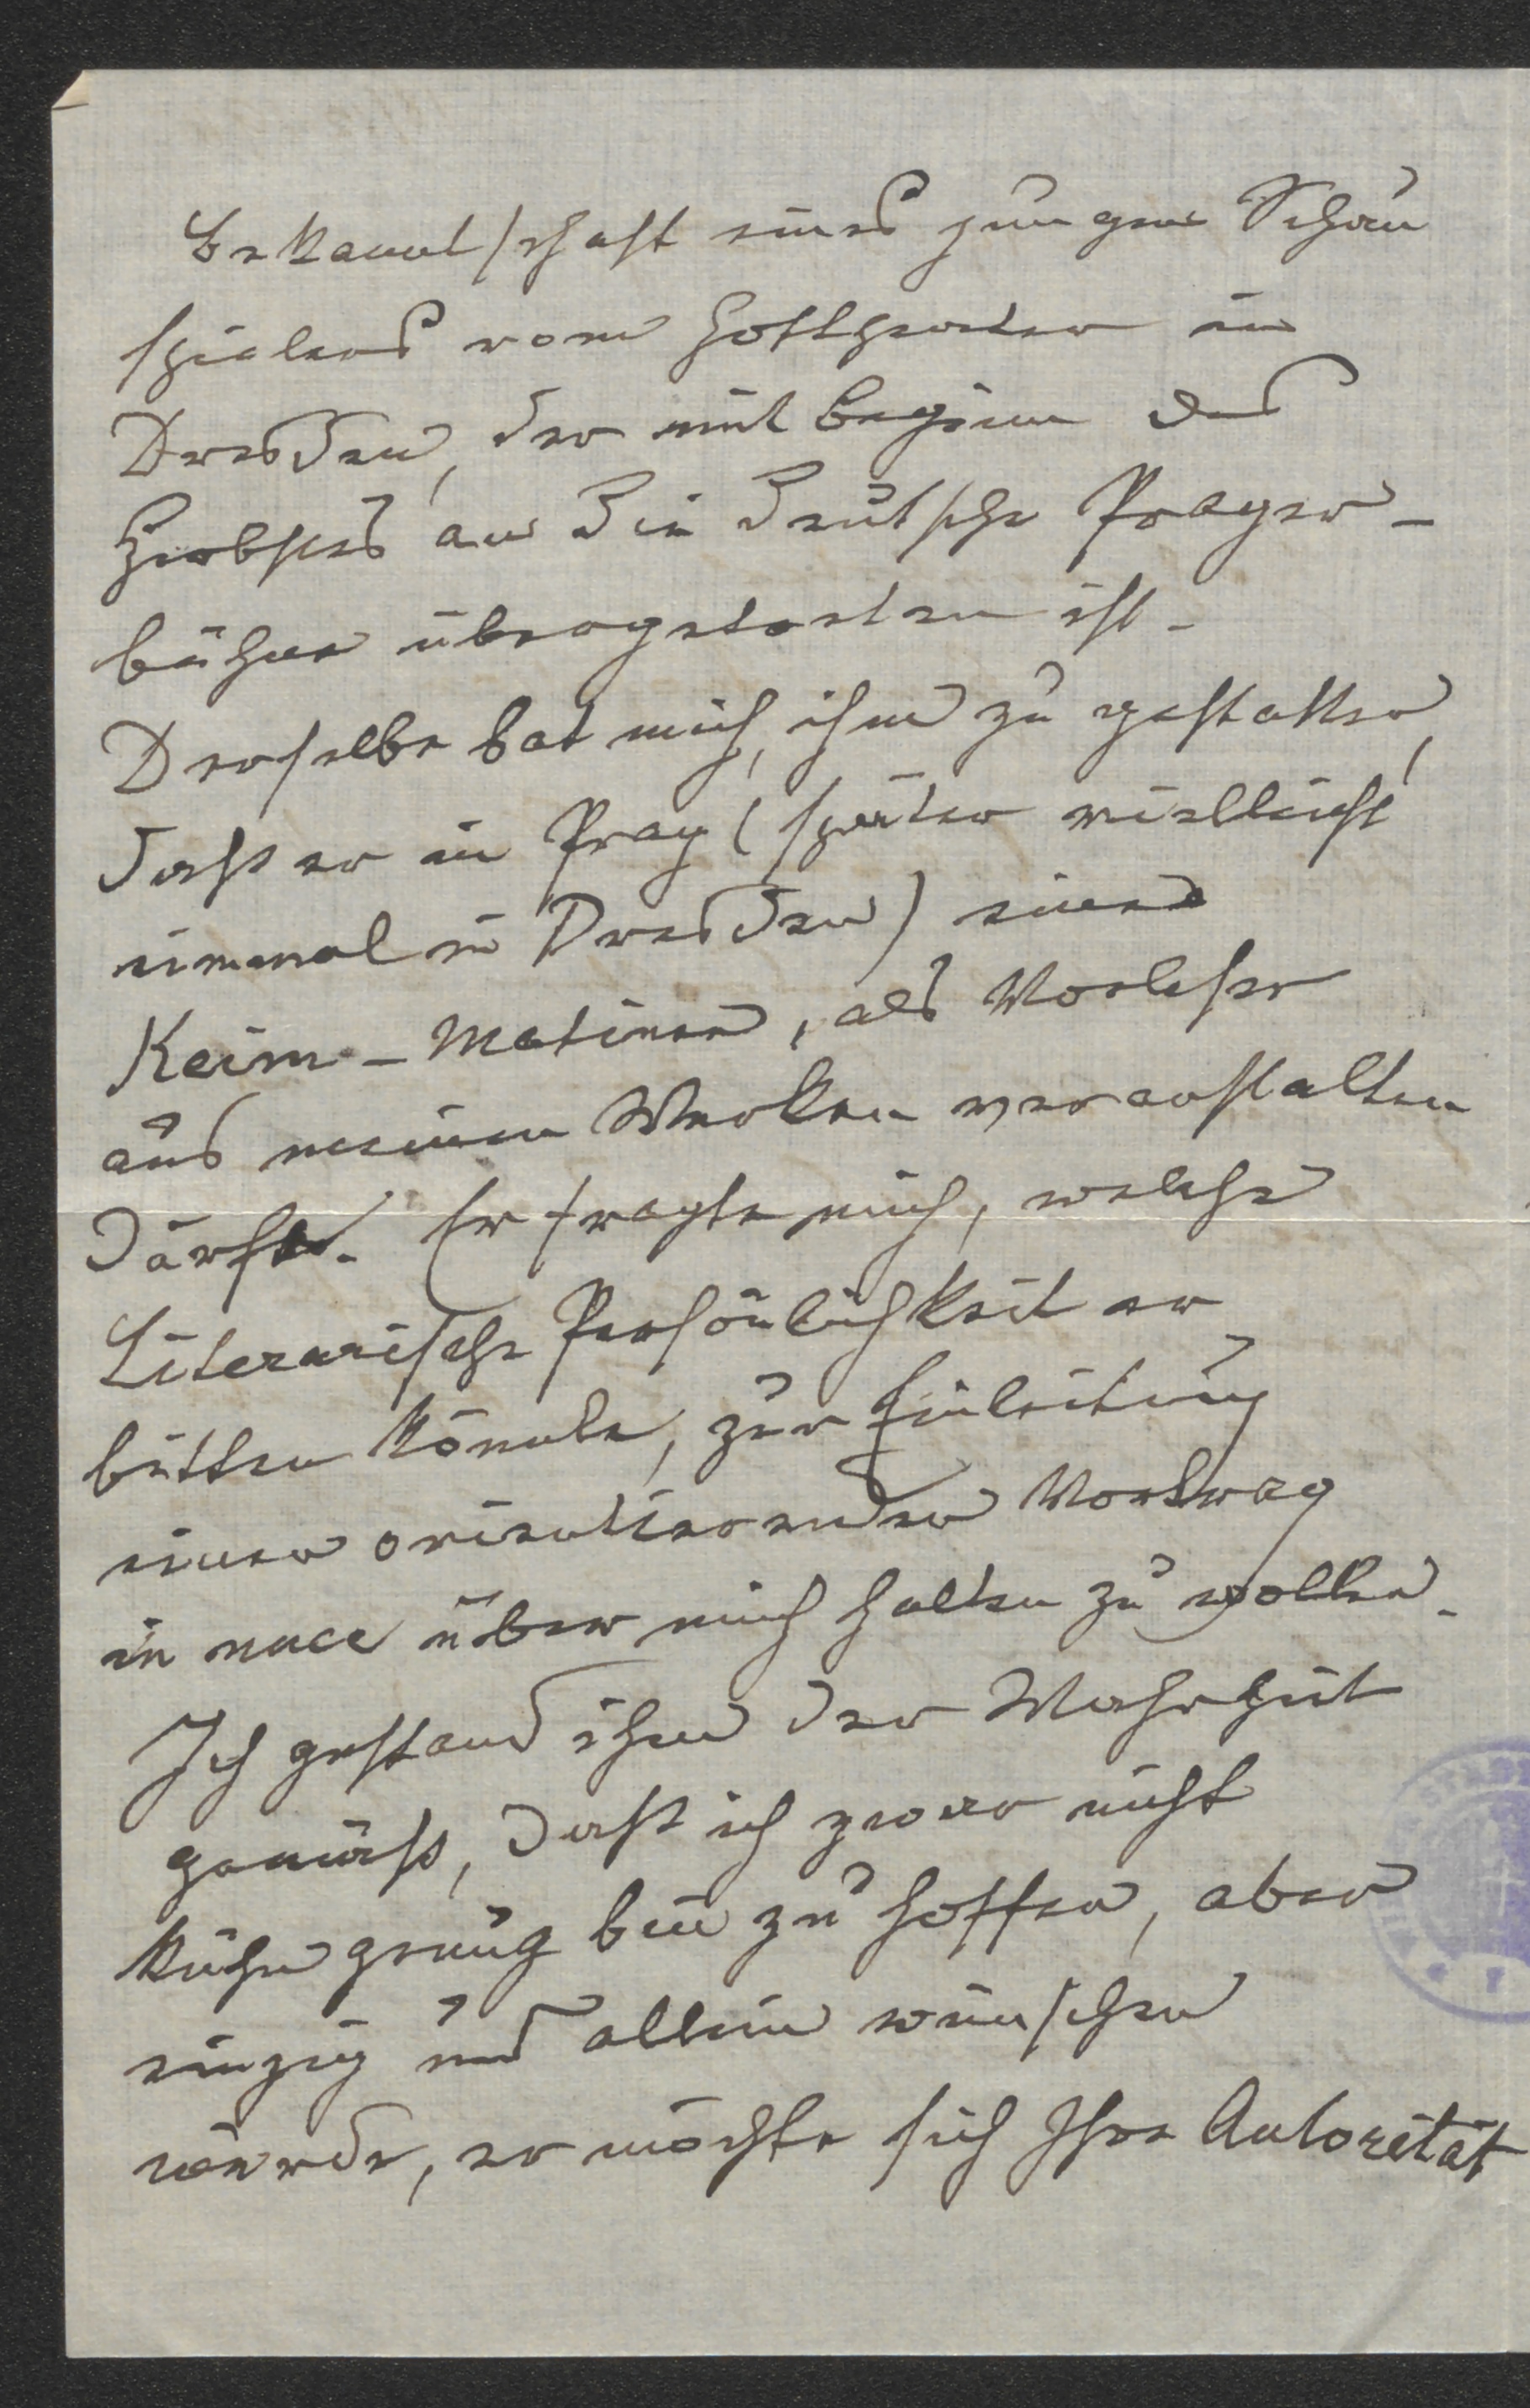 Bekanntschaft eines jungen Schau
spielers vom Hoftheater in
Dresden, der mit Beginn des
Herbstes an die deutsche Prager-
bühne übergetreten ist.
Derselbe bat mich, ihm zu gestatten,
dass er in Prag (später vielleicht
einmal in Dresden) eine
Keim-Matinee, als Vorleser
aus meinen Werken veranstalten
dürfte. Er fragte mich, welche
Literarische Persönlichkeit er
bitten könnte, zur Einleitung
einen orientierenden Vortrag
in nuce über mich halten zu wollen.
Ich gestand ihm der Wahrheit
gemäss, dass ich zwar nicht
kühn genug bin zu hoffen, aber
einzig und allein wünschen
würde, er möchte sich Ihre Autorität